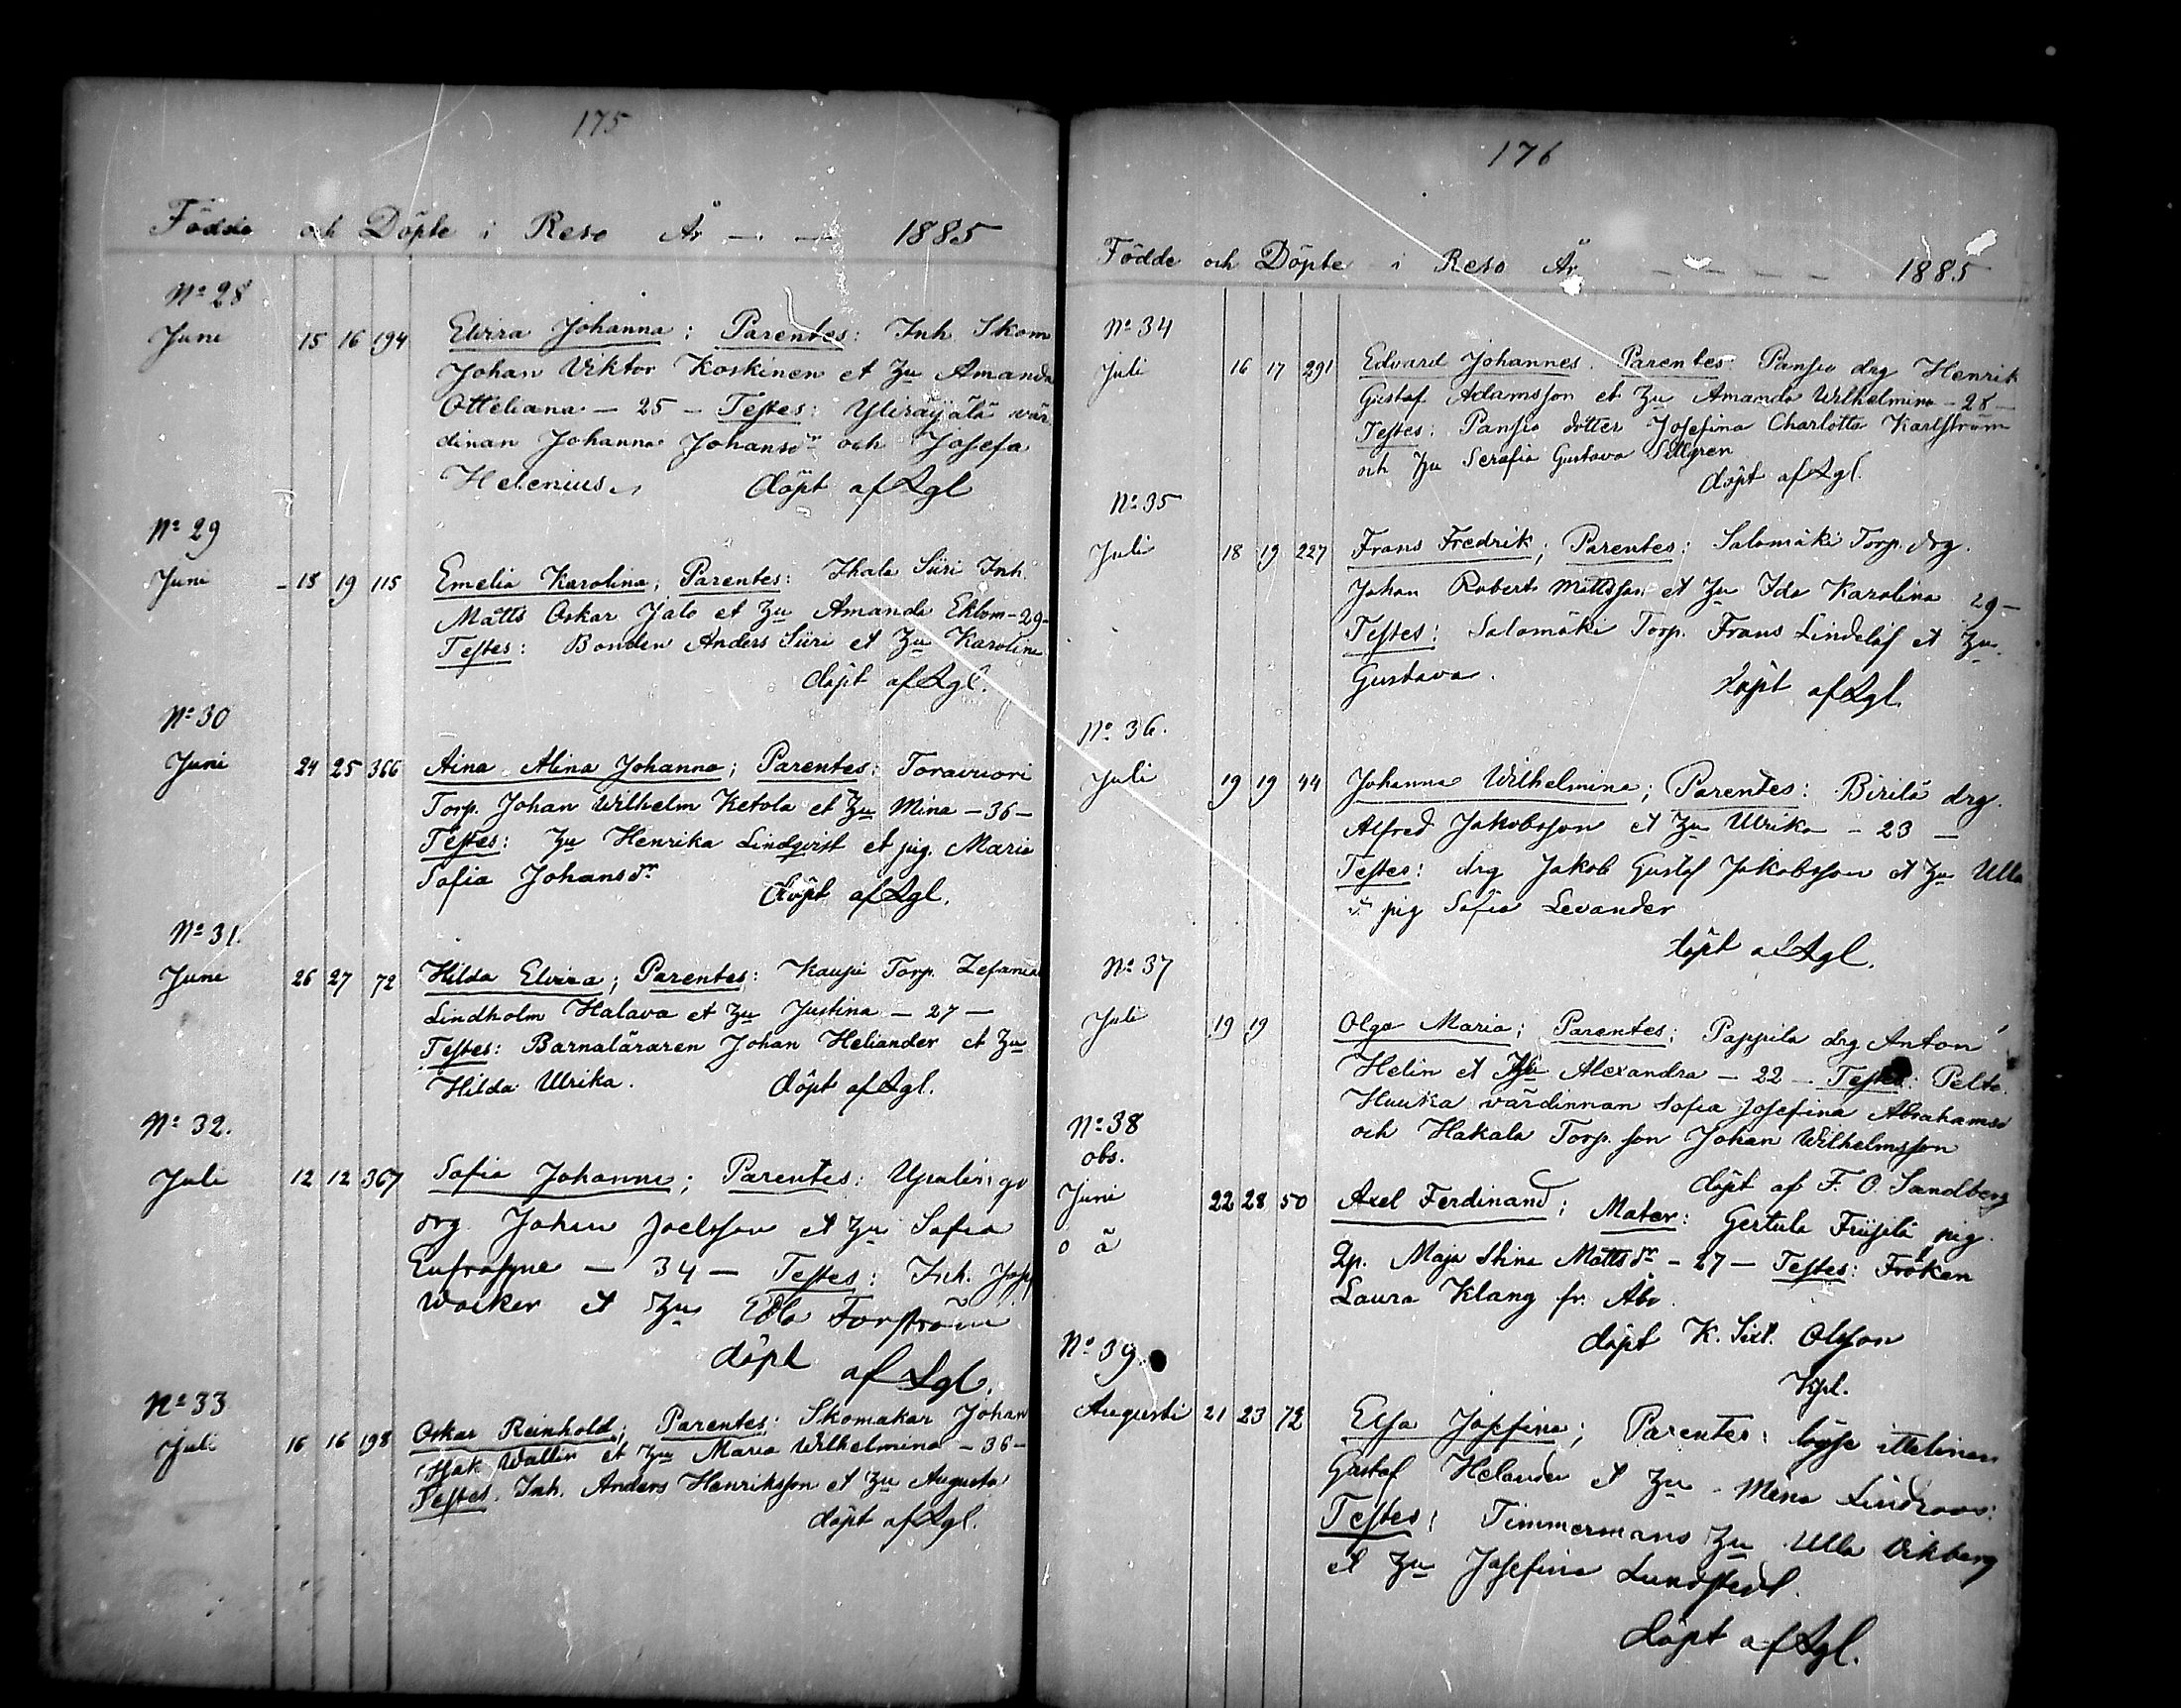 175
Födde och Döpte i Reso År — — 1885
No 28
Juni 15 16 194 Elvira Johanna; Parentes: Inh Skom
Johan Viktor Koskinen et Hu Amanda
Otteliana — 25 — Testes: Yliräyälä vär
dinan Johanna Johansdr och Josefa
Helenius. döpt af Agl
No 29
Juni 18 19 115 Emelia Karolina; Parentes: Ihala Siiri Inh.
Matts Oskar Jalo et Hu Amanda Ekbom — 29 —
Testes: Bonden Anders Siiri et Hu Karolina
döpt af Agl.
No 30
Juni 24 25 366 Aina Alina Johanna; Parentes: Toravuori
Torp. Johan Wilhelm Ketola et Hu Mina — 36 —
Testes: Hu Henrika Lindqvist et pig. Maria
Sofia Johansdr döpt af Agl.
No 31.
Juni 26 27 72 Hilda Elvira; Parentes: Kaupi Torp. Zefanias
Lindholm Halava et Hu Justina — 27 —
Testes: Barnaläraren Johan Heliander et Hu
Hilda Ulrika. döpt af Agl.
No 32.
Juli 12 12 367 Sofia Johanna; Parentes:
drg Johan Joelsson et Hu Sofia
Eufrosyne — 34 — Testes: Inh. Josef
Waiker et Hu Edla Forsström
döpt af Agl.
No 33
Juli 16 16 198 Oskar Reinhold; Parentes: Skomakar Johan
Isak Wallin et Hu Maria Wilhelmina — 36 —
Testes. Inh. Anders Henriksson et Hu Augusta
döpt af Agl.
176
Födde och Döpte i Reso År — — — — 1885
No 34
Juli 16 17 291 Edvard Johannes. Parentes Pansio drg Henrik
Gustaf Adamsson et Hu Amanda Wilhelmina — 28 —
Testes: Pansio dotter Josefina Charlotta Karlström
och Hu Serafia Gustava Sillgren
döpt af Agl.
No 35
Juli 18 19 227 Frans Fredrik; Parentes: Salomäki Torp. drg.
Johan Robert Mattsson et Hu Ida Karolina 29 —
Testes: Salomäki Torp. Frans Lindelöf et Hu
Gustava. döpt af Agl.
No 36.
Juli 19 19 44 Johanna Wilhelmina; Parentes: Birilä drg.
Alfred Jakobsson et Hu Ulrika — 23 —
Testes: drg Jakob Gustaf Jakobsson et Hu Ulla
o. pig Sofia Levander
döpt af Agl.
No 37
Juli 19 19 Olga Maria; Parentes: Pappila drg Anton
Helin et Hu Alexandra — 22 — Testes: Pelto.
Huuka värdinnan Sofia Josefina Abrahamsd
och Hakala Torp. son Johan Wilhelmsson
döpt af F. O. Sandberg
No 38
obs.
Juni 22 28 50 Axel Ferdinand; Mater: Gertula Friisilä pig.
o ä Qp. Maja Stina Mattsdr — 27 — Testes: Fröken
Laura Klang fr. Åbo.
döpt K. Sixt. Olsson
Kpl.
No 39.
Augusti 21 23 72 Elsa Josefina; Parentes:
Gustaf Helander et Hu Mina Lindroos:
Testes: Timmermans Hu Ulla Vikberg
et Hu Josefina Lundstedt.
döpt af Agl.